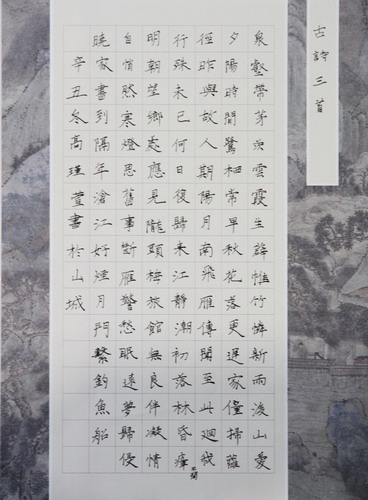 古詩三首
泉壑帶茅茨雲霞生薜帷竹憐新雨後山愛
夕陽時閒鷺栖常早秋花落更遲家僮掃蘿
徑昨與故人期陽月南飛雁傳聞至此迴我
行殊未已何日復歸來江靜潮初落林昏瘴不開
明朝望鄉處應見隴頭梅旅館無良伴凝情
自悄然寒燈思舊事斷雁警愁眠遠夢歸侵
曉家書到隔年滄江好煙月門繫釣魚船
辛丑冬高瑾萱書於山城